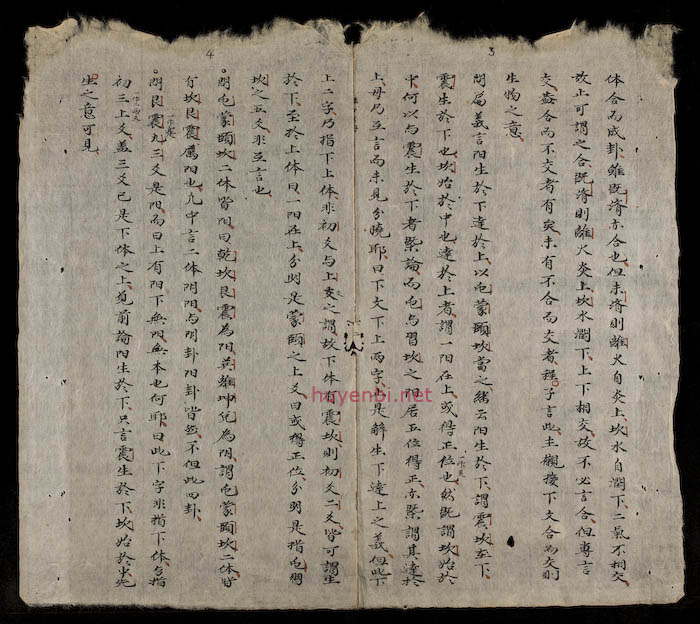 3
体合而成卦雖既済亦合也但未済則離火自炎上坎水自潤下二氣不相交
故止可謂之合既済則離火炎上坎水潤下上下相交故不必言合但專言
交盖合而不交者有矣未有不合而交者程子言此主觀接下文合而交則
生物之意
問篇義言阳生於下達於上以屯蒙頤坎當之緒云阳生於下謂震坎在下
震生於下也坎始於中也達於上者謂一阳在上或得正位也然既謂坎始於
中何以与震生於下者緊論而屯与習坎之阳居五位得正亦緊謂其達於
上毋乃互言而未見分曉耶曰下文下上两字只是解生下達上之義但此下
4
上二字乃指下上体非初爻与上爻之謂故下体有震坎則初爻二爻皆可謂生
於下至於上体曰一阳在上分明是蒙頤之上爻曰或得正位分明是指屯習
坎之五爻非互言也
問屯蒙頤坎二体皆阳曰乾坎艮震為阳巽離坤兌為阴謂屯蒙頤坎二体皆
有坎艮震属阳也凢中言二体阴阳与阴卦阳卦皆然不但此四卦
問艮震九三爻是阳而曰上有阳下無阳無本也何耶曰此下字非指下体乃指
初三上爻盖三爻已是下体之上見前論阳生於下只言震生於下坎始於中
生之意可見
huyenbi.net